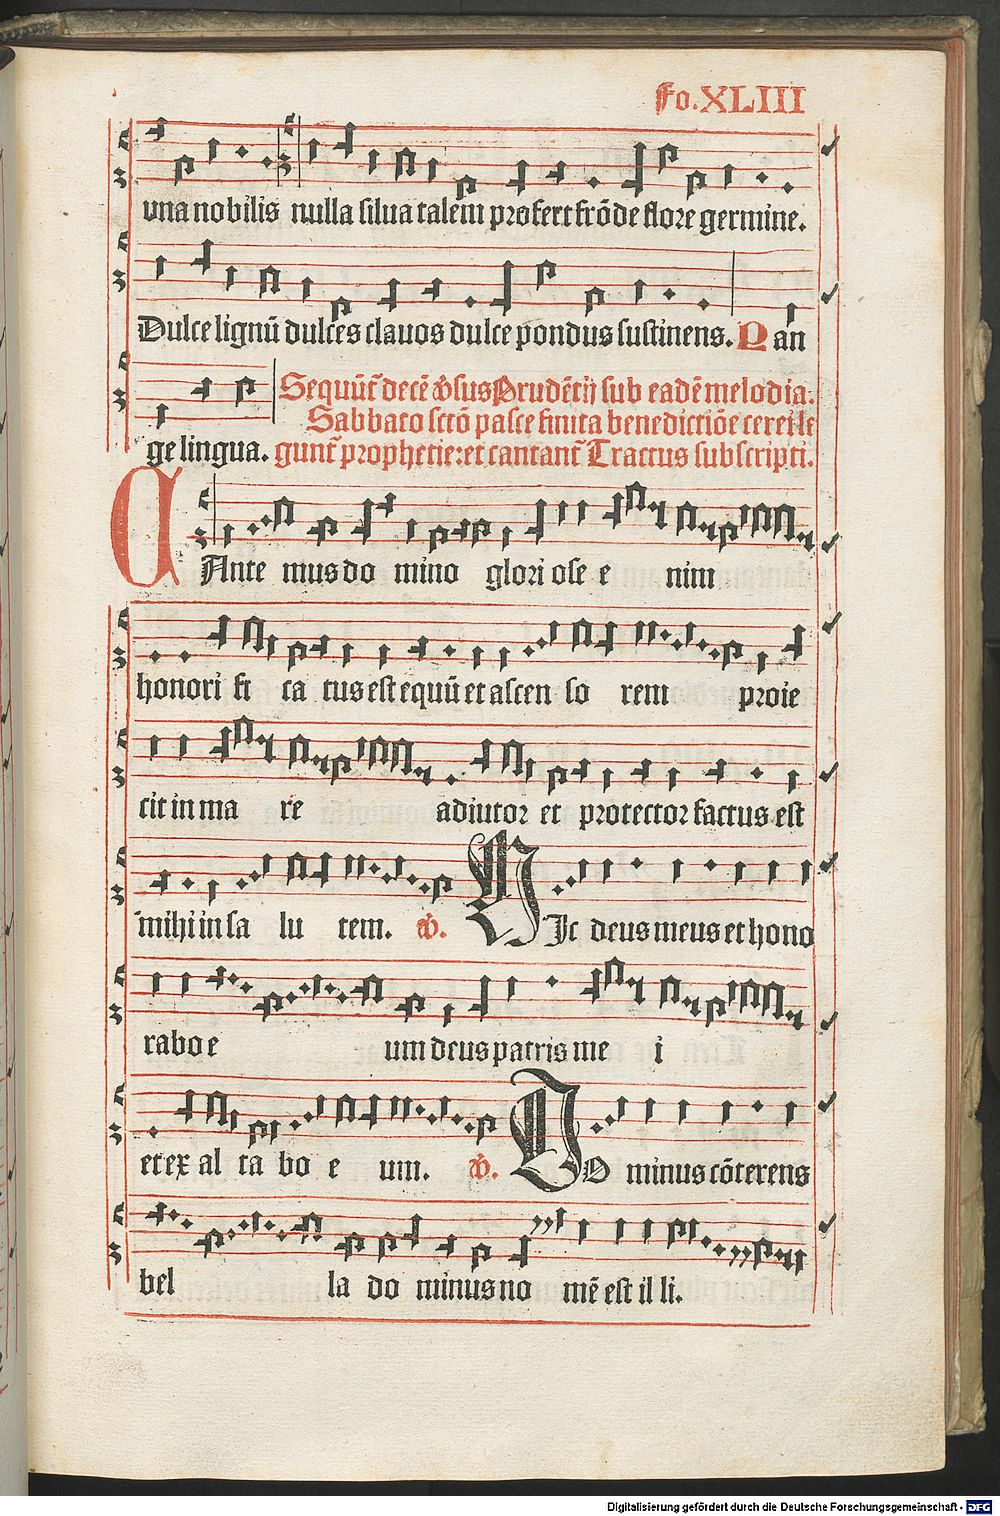 Fo.XLIII
una nobilis nulla silua talem profert frōde flore germine.
Dulce lignū dulces clauos dulce pondus sustinens. Pan
ge lingua.
Sequūt᷑ decē v̉sus Prudētij sub eadē melodia.
Sabbato sctō pasce finita benedictiōe cerei le
gunt᷑ prophetie: et cantant᷑ Tractus subscripti.
CAnte mus do mino glori ose e nim
honori fi ca tus est equū et ascen so rem proie
cit in ma re adiutor et protector factus est
mihi in sa lu tem. v̉. HIc deus meus et hono
rabo e um deus patris me i
et ex al ta bo e um. v̉. DO minus cōterens
bel la do minus no mē est il li.
Digitalisierung gefördert durch die Deutsche Forschungsgemeinschaft - DFG